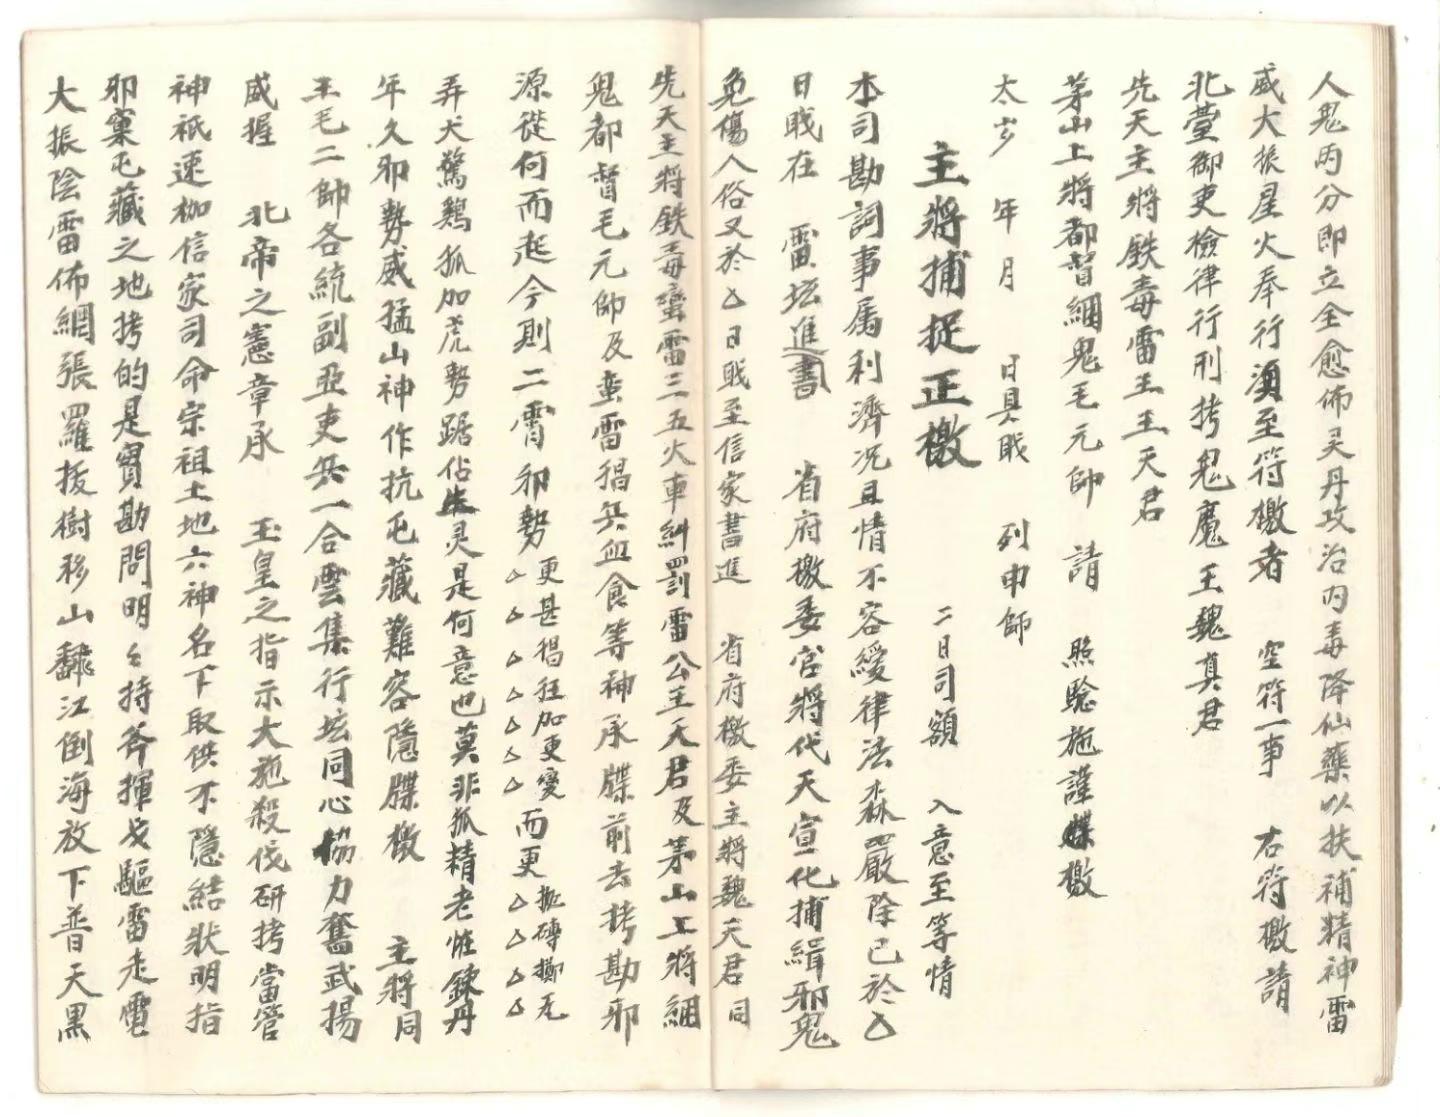 人鬼丙分即立全愈佈灵丹攻治内毒降仙藥以扶補精神雷
威大振星火奉行湏至符檄者　空符一事　右符檄請
北臺御吏檢律行刑拷鬼魔王魏真君
先天主將鉄毒雷王王天君
茅山上將都督綑鬼毛元帥　請　照驗施謹牒檄
太岁　年　月　日具戝　列申師
主將捕捉正檄　二日司額　入意至等情
本司勘詞事属利濟况且情不容緩律法森嚴除已於△
日戝在　雷坛進書　省府檄委官將代天宣化捕緝邪鬼
免傷人俗又於△日戝至信家書進　省府檄委主將魏天君同
先天主將鉄毒蛮雷三五火車糾罰雷公王天君及茅山上將綑
鬼都督毛元帥及蛮雷猖兵血食等神承牒前去拷勘邪
源從何而起今則二宵邪勢更甚猖狂加更变△△△△△△而更拋磚擲瓦△△△△
弄犬驚鷄狐加虎勢踞佔生灵是何意也莫非狐精老怪鍊丹
年久邪勢威猛山神作抗屯藏難容隱牒檄　主將同
王毛二帥各統副亞吏兵一合雲集行坛同心協力奮武揚
威握　北帝之憲章承　玉皇之指示大施殺伐研拷當管
神祇速枷信家司命宗祖土地六神名下取供不隱結狀明指
邪窠屯藏之地拷的是實勘問明々持斧揮戈驅雷走電
大振陰雷佈網張羅拔樹移山翻江倒海放下普天黑